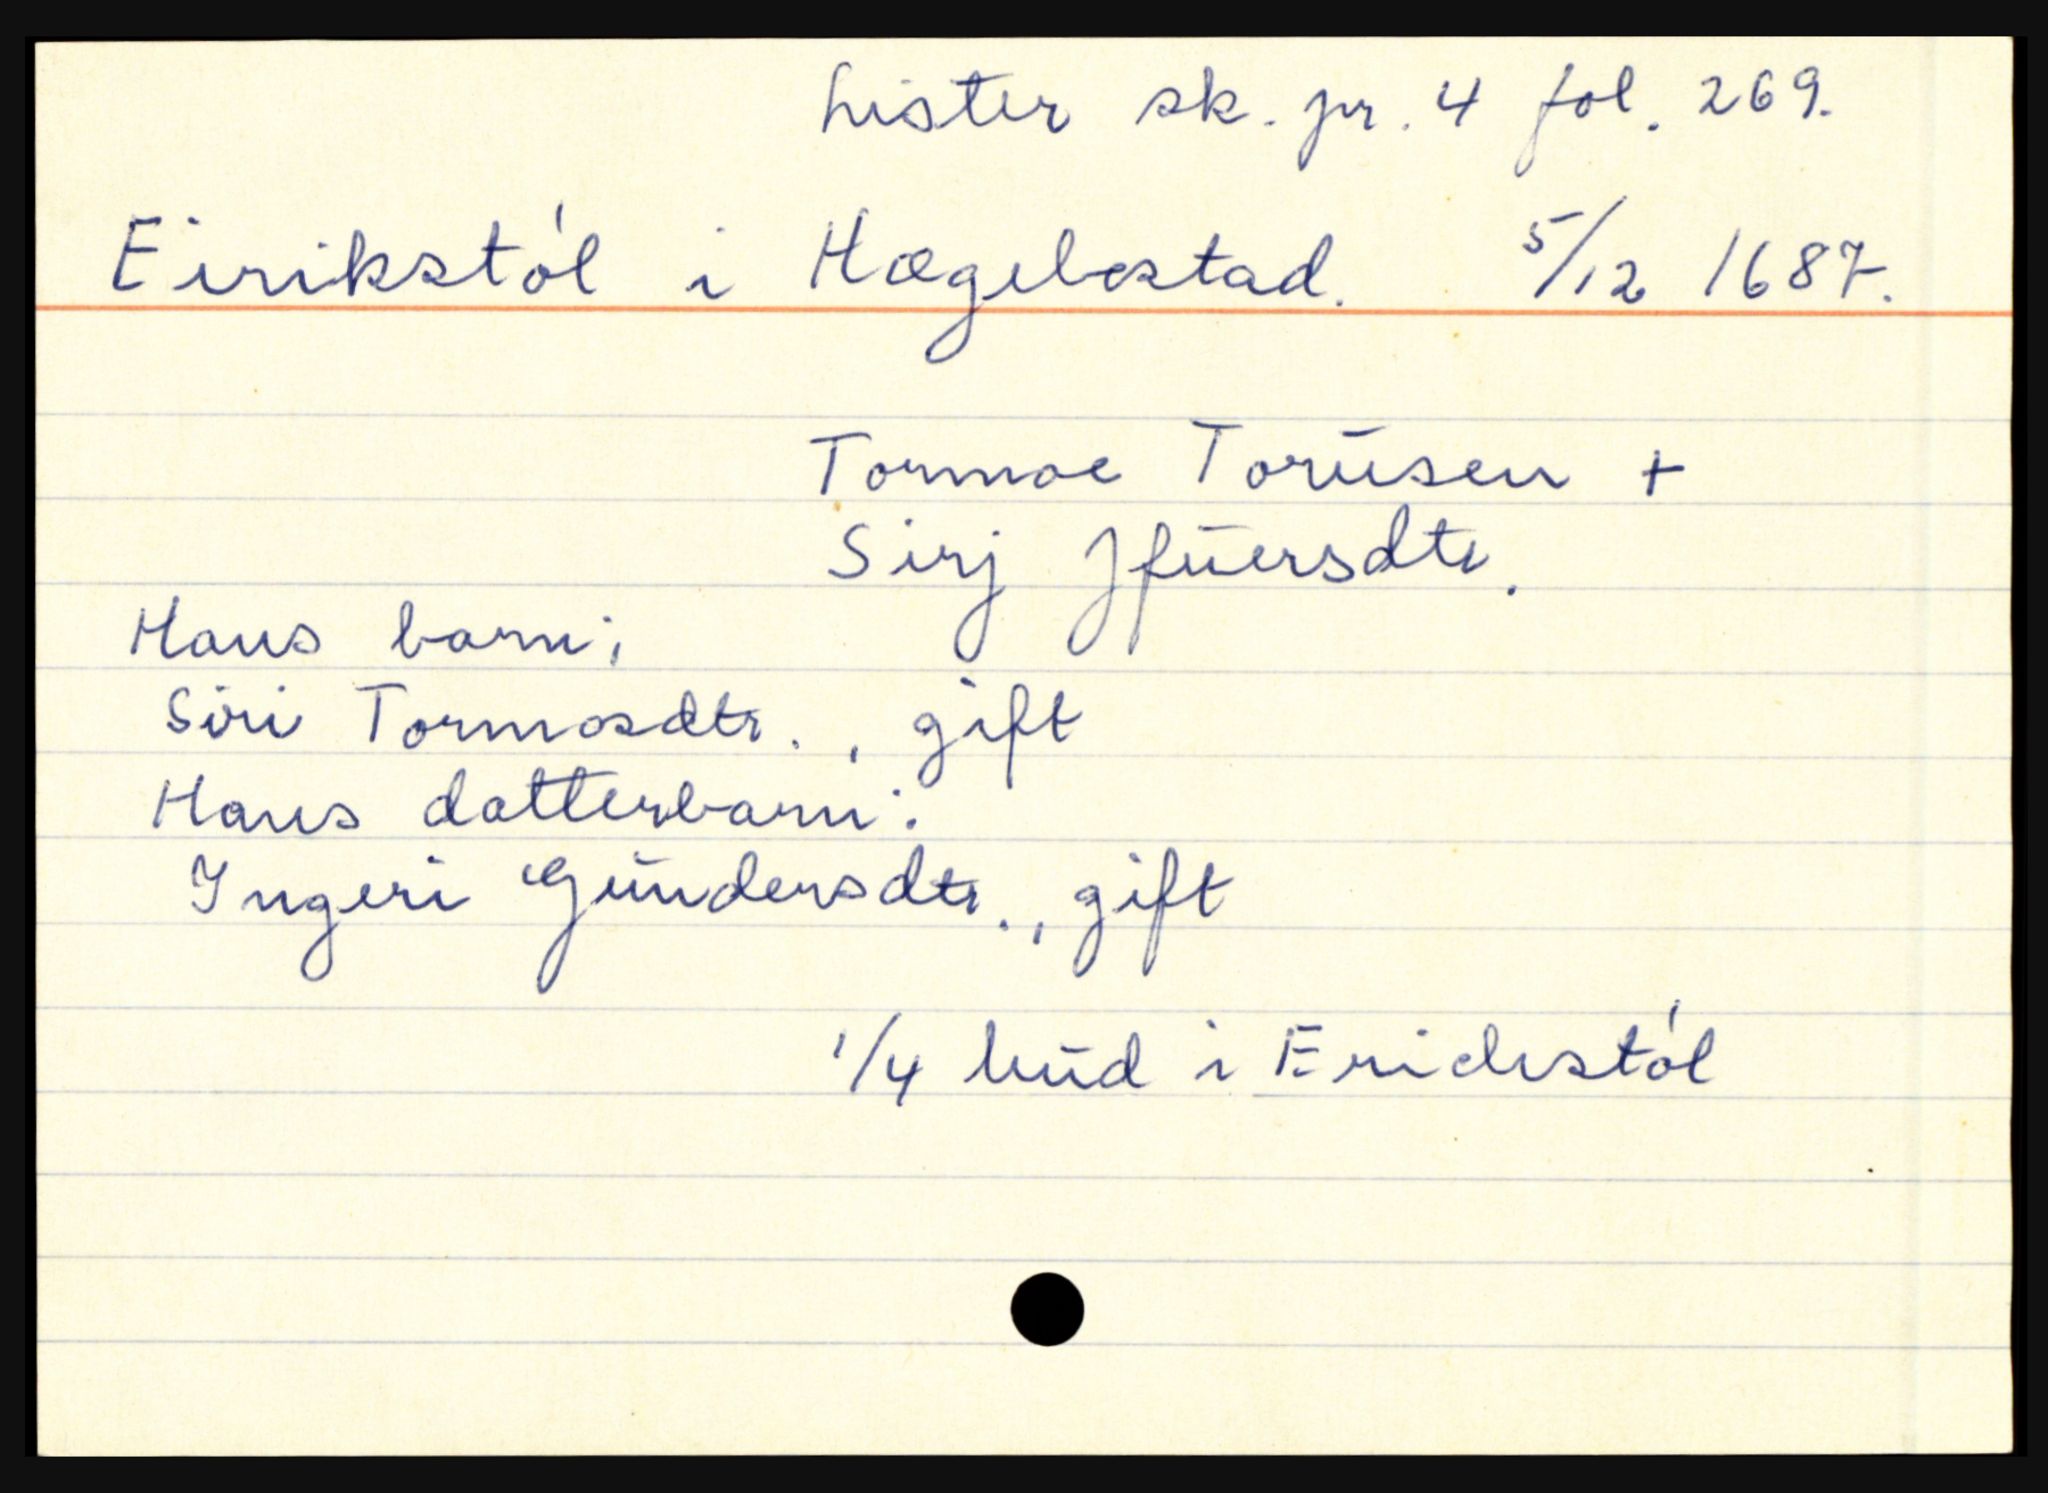 Lister sk. pr. 4 fol. 269.
Eirikstól i Hægebostad. 5/12 1687.
Tormoe Torusen +
Sirj Jfuersdtr.
Hans barn;
Siri Tormosdtr., gift
Hans datterbarn:
Ingeri Gundersdtr., gift
1/4 hud i Erichstól